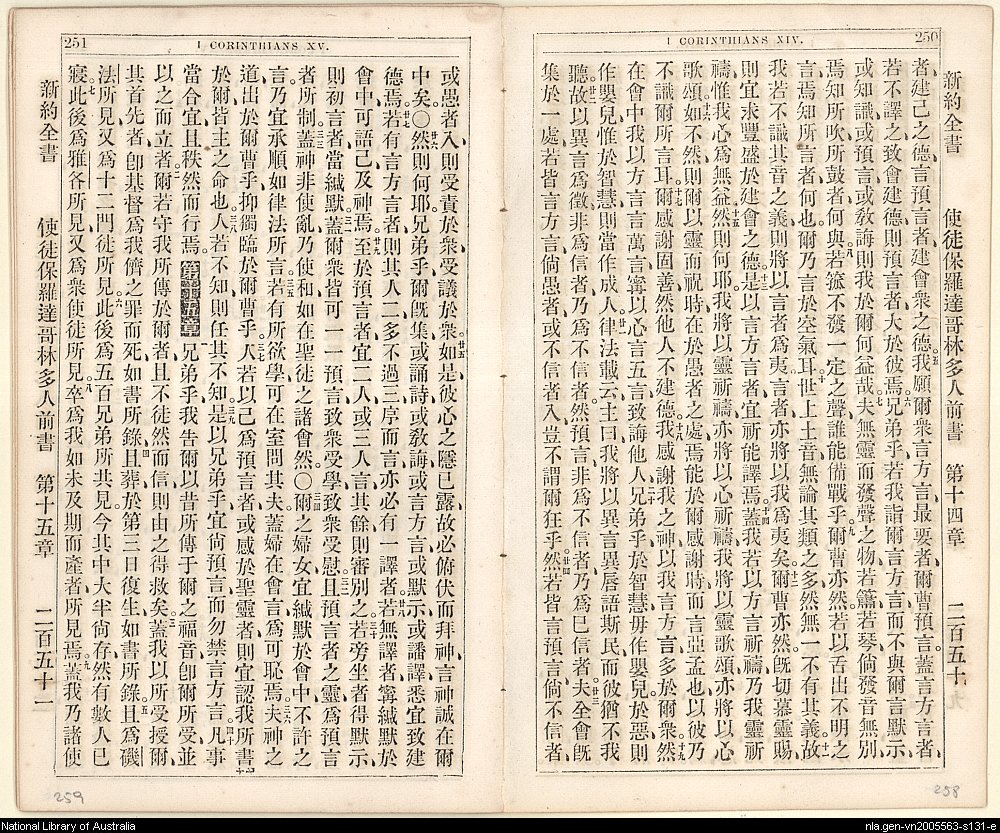 250
1 CORINTHIANS XIV.
新約全書 使徒保羅達哥林多人前書 第十四章 二百五十
者、建己之德、言預言者、建會衆之德、五我願爾衆言方言、最要者、爾曹預言、蓋言方言者、
若不譯之致會建德、則預言者大於彼焉、六兄弟乎、若我詣爾言方言、而不與爾言默示、
或知識、或預言、或敎誨、則我於爾何益哉、七夫無靈而發聲之物、若簫若琴、倘發音無別、
焉知所吹所鼓者何與、八若箛不發一定之聲、誰能備戰乎、九爾曹亦然、若以舌出不明之
言、焉知所言者何也、爾乃言於空氣耳、十世上土音、無論其類之多、然無一不有其義、十一故
我若不識其音之義、則將以言者爲夷、言者亦將以我爲夷矣、十二爾曹亦然、旣切慕靈賜、
則宜求豐盛於建會之德、十三是以言方言者、宜祈能譯焉、十四蓋我若以方言祈禱、乃我靈祈
禱、惟我心爲無益、十五然則何耶、我將以靈祈禱、亦將以心祈禱、我將以靈歌頌、亦將以心
歌頌、十六如不然、則爾以靈而祝時、在於愚者之處、焉能於爾感謝時而言亞孟也、以彼乃
不識爾所言耳、十七爾感謝固善、然他人不建德、十八我感謝我之神、以我言方言、多於爾衆、十九然
在會中、我以方言言萬言、寧以心言五言、致誨他人、二十兄弟乎、於智慧毋作嬰兒、於惡則
作嬰兒、惟於智慧則當作成人、廿一律法載云、主曰、我將以異言異唇、語斯民、而彼猶不我
聽、廿二故以異言爲徵、非爲信者、乃爲不信者、然預言、非爲不信者、乃爲已信者、廿三夫全會旣
集於一處、若皆言方言、倘愚者或不信者入、豈不謂爾狂乎、廿四然若皆言預言、倘不信者、
258
251
1 CORINTHIANS XV.
或愚者入、則受責於衆、受議於衆、廿五如是彼心之隱已露、故必俯伏而拜神、言神誠在爾
中矣、○廿六然則何耶、兄弟乎、爾旣集、或誦詩、或敎誨、或言方言、或默示、或譒譯、悉宜致建
德焉、廿七若有言方言者、則其人二、多不過三、序而言、亦必有一譯者、廿八若無譯者、寧緘默於
會中、可語己及神焉、廿九至於預言者、宜二人或三人言、其餘則審別之、三十若旁坐者得默示、
則初言者當緘默、三一蓋爾衆皆可一一預言、致衆受學、致衆受慰、三二且預言者之靈、爲預言
者所制、三三蓋神非使亂、乃使和、如在聖徒之諸會然、○三四爾之婦女、宜緘默於會中、不許之
言、乃宜承順、如律法所言、三五若有所欲學、可在室問其夫、蓋婦在會言、爲可恥焉、三六夫神之
道、出於爾曹乎、抑獨臨於爾曹乎、三七人若以己爲預言者、或感於聖靈者、則宜認我所書
於爾、皆主之命也、三八人若不知、則任其不知、三九是以兄弟乎、宜尙預言、而勿禁言方言、四十凡事
當合宜且秩然而行焉、第十五章一兄弟乎、我吿爾以昔所傳于爾之福音、卽爾所受、並
以之而立者、二爾若守我所傳於爾者、且不徒然而信、則由之得救矣、三蓋我以所受授爾、
其首先者、卽基督爲我儕之罪而死、如書所錄、四且葬、於第三日復生、如書所錄、五且爲磯
法所見、又爲十二門徒所見、六此後爲五百兄弟所共見、今其中大半尙存、然有數人已
寢、七此後爲雅各所見、又爲衆使徒所見、八卒爲我如未及期而產者所見焉、九蓋我乃諸使
新約全書 使徒保羅達哥林多人前書 第十五章 二百五十一
259
National Library of Australia
nla.gen-vn2005563-s131-e